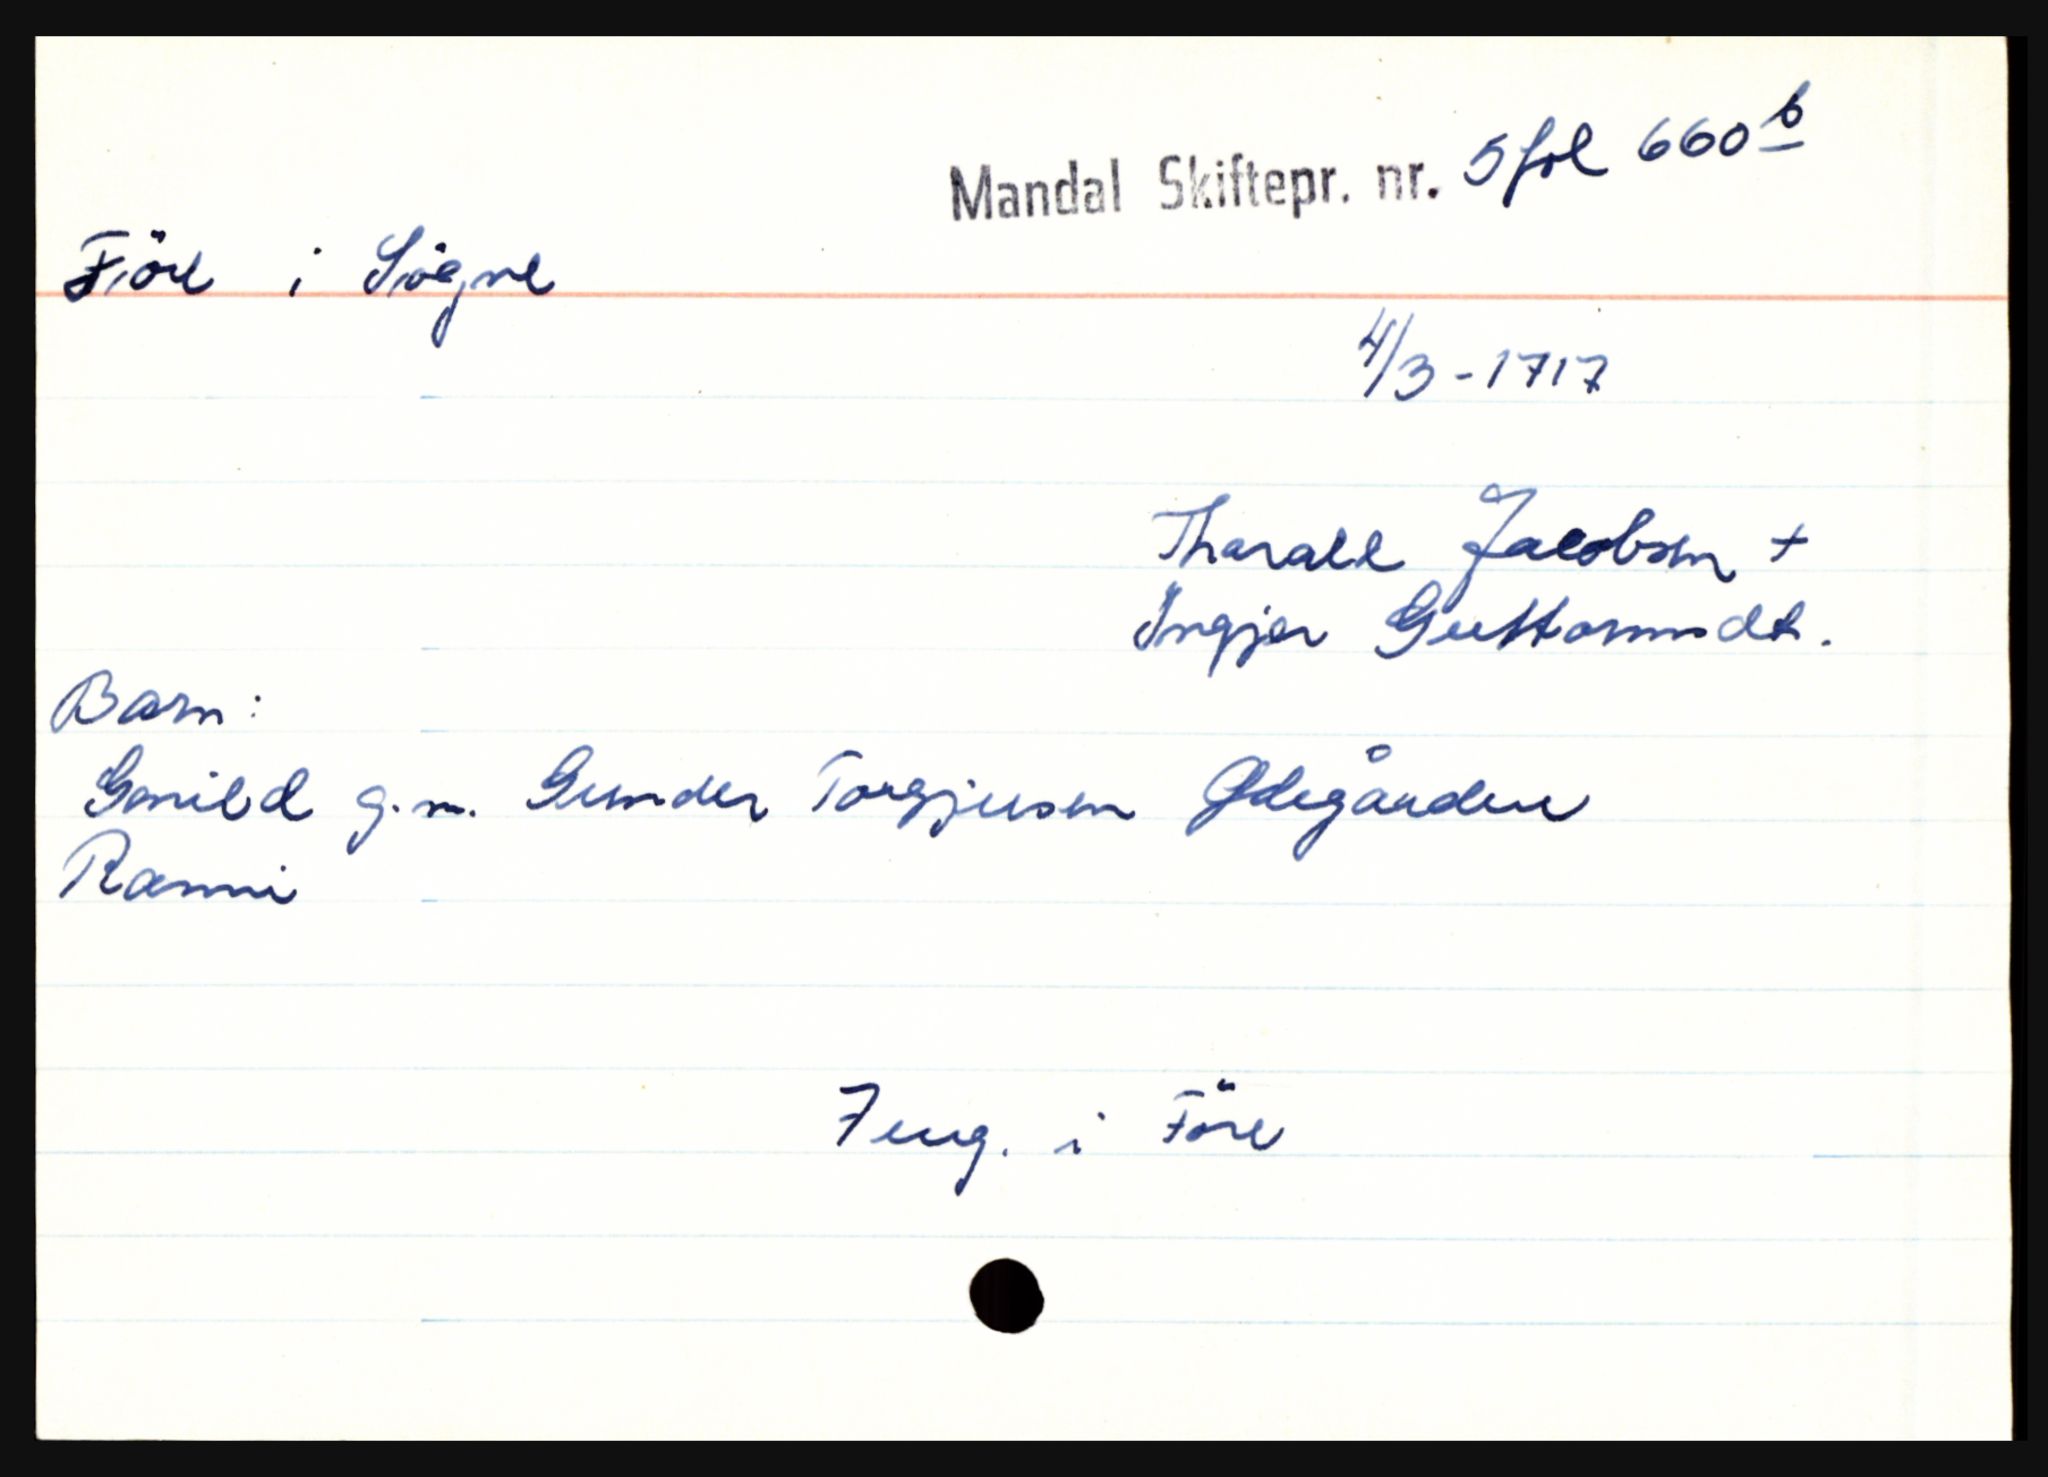 Mandal Skiftepr. nr. 5 fol 660 b
Före i Sögne
4/3 - 1717
Tharald Jacobsen +
Ingjer Guttormsdt.
Barn:
Gunild g.m. Gunder Torgjusen Ødegården
Ranni
7 eng. i Före